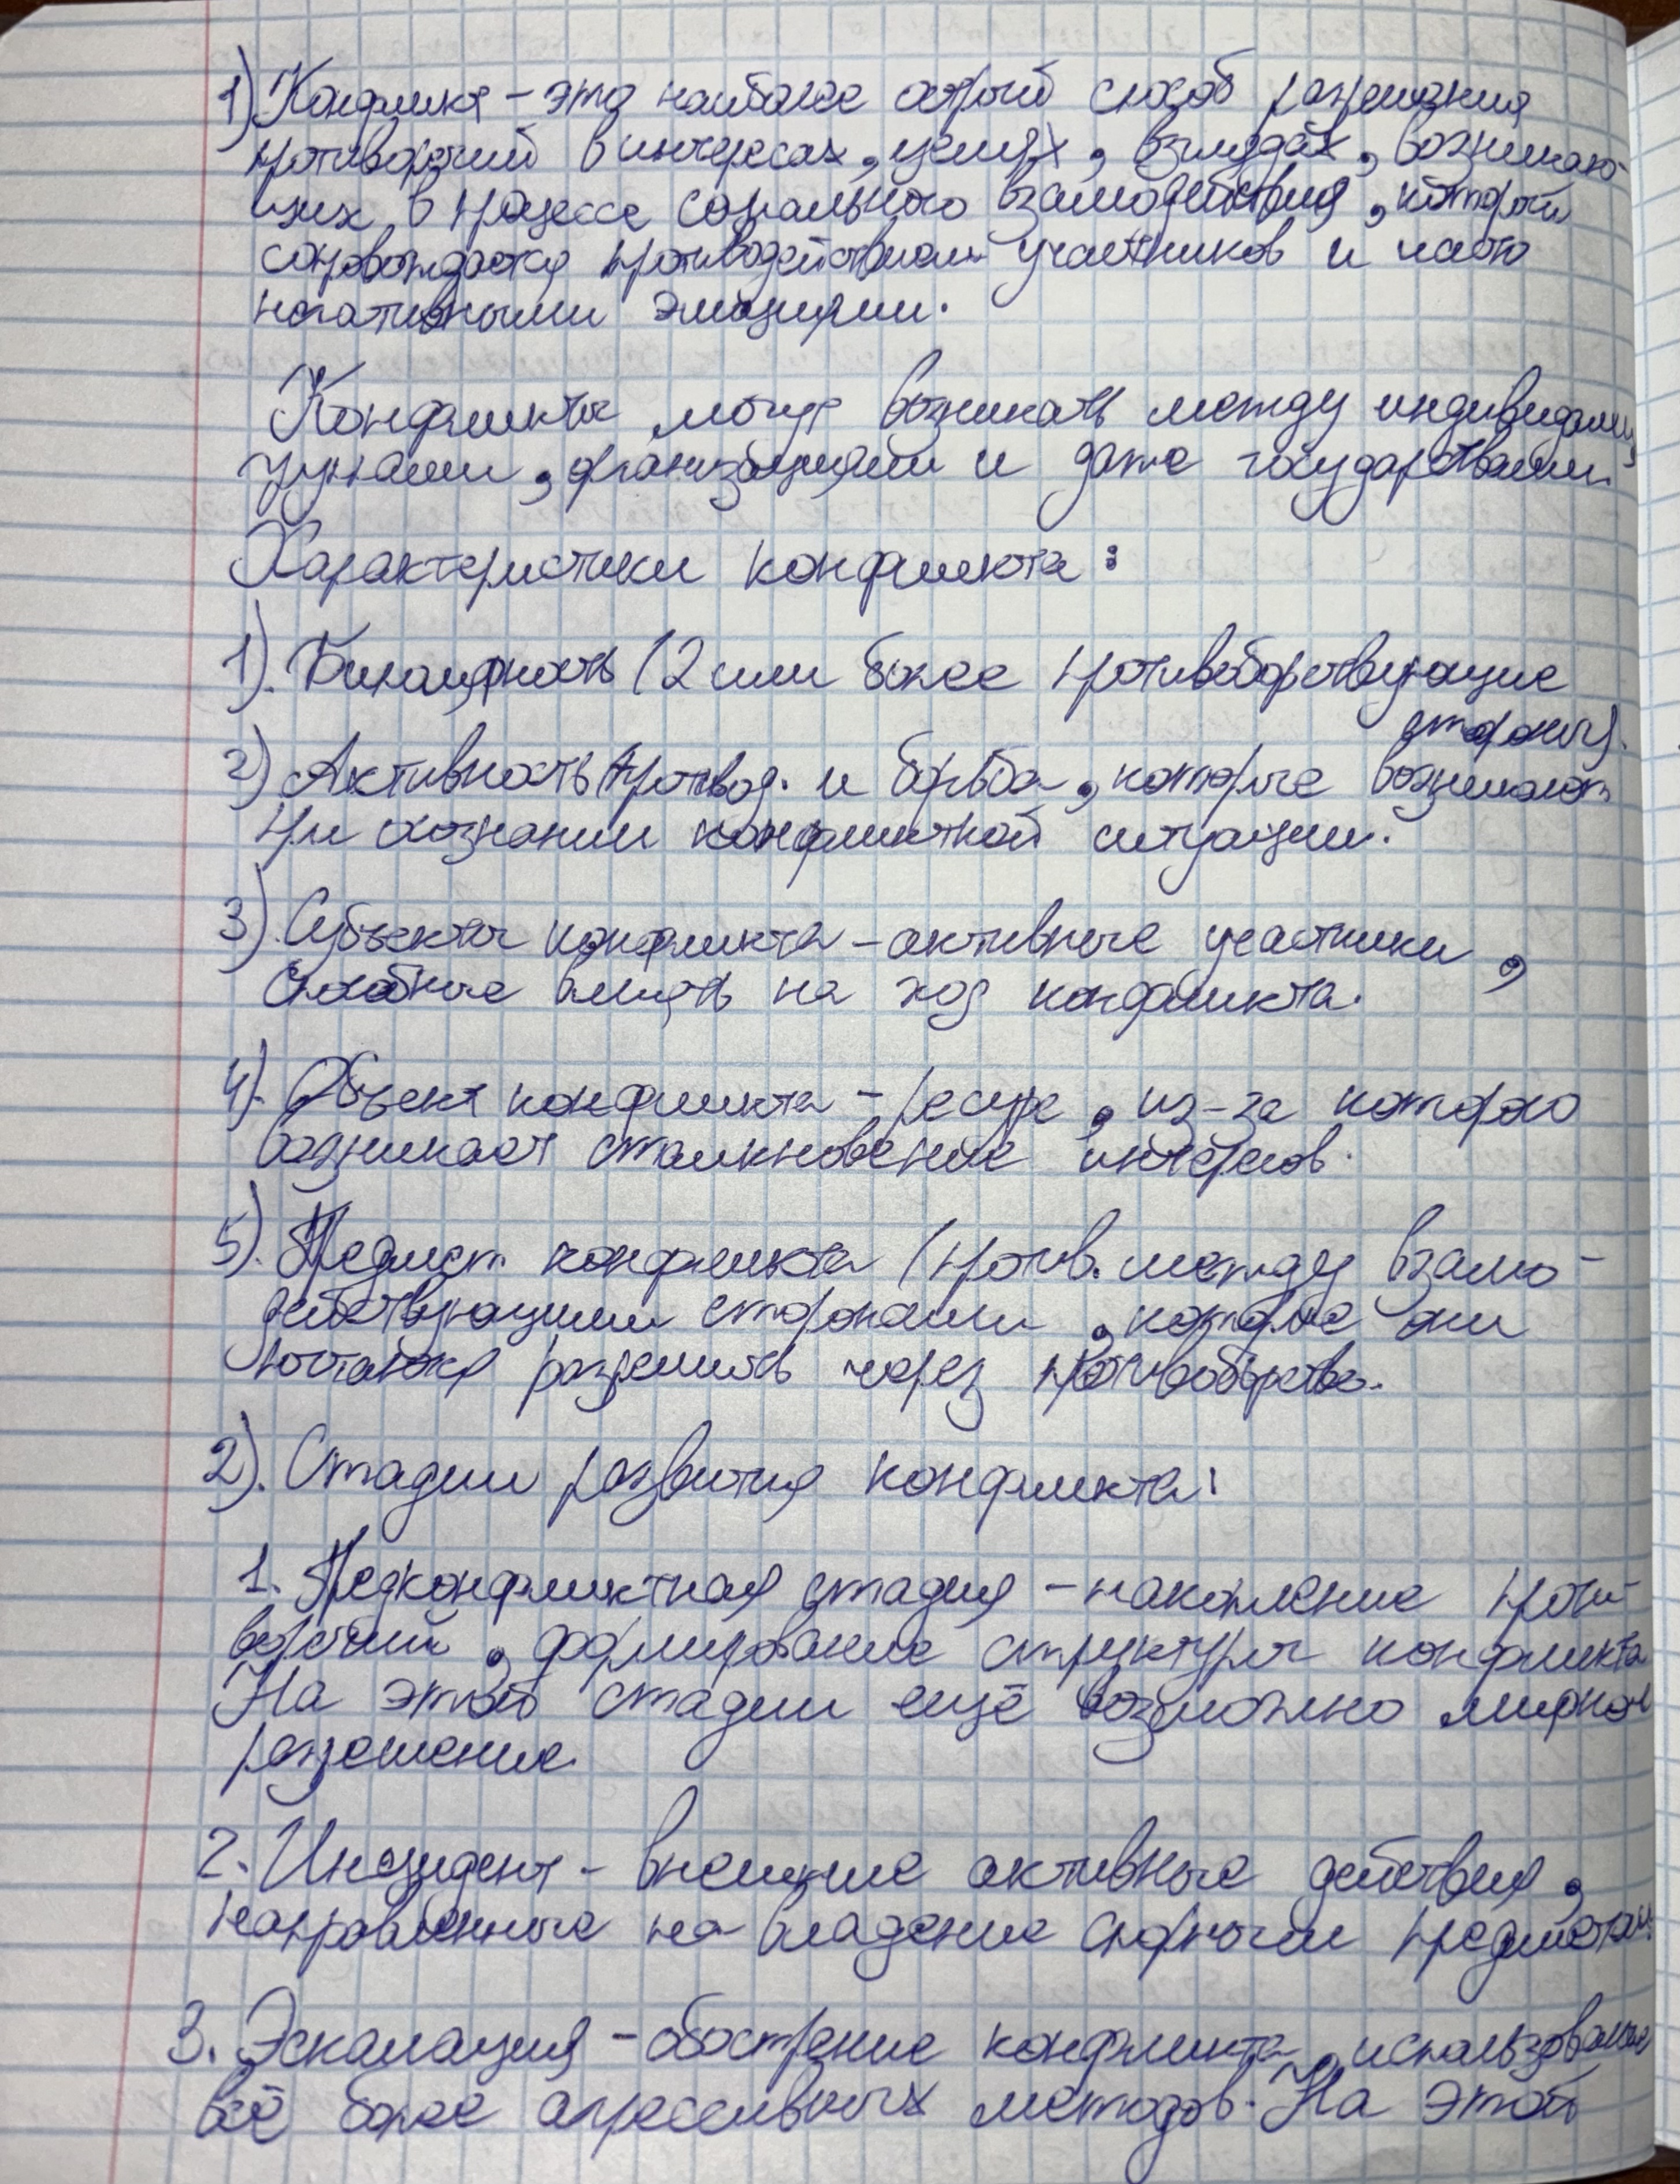 1) Конфликт – это наиболее острый способ разрешения
противоречий в интересах, целях, взглядах, возникаю-
щих в процессе социального взаимодействия, который
сопровождается противодействием участников и часто
негативными эмоциями.
Конфликты могут возникать между индивидами,
группами, организациями и даже государствами.
Характеристики конфликта:
1). Биполярность (2 или более противоборствующие
стороны).
2) Активность (противод. и борьба, которые возникают
при осознании конфликтной ситуации.
3). Субъекты конфликта – активные участники,
способные влиять на ход конфликта.
4). Объект конфликта – ресурс, из-за которого
возникает столкновение интересов.
5). Предмет конфликта (против. между взаимо-
действующими сторонами, которые они
пытаются разрешить через противоборство.
2). Стадии развития конфликта:
1. Предконфликтная стадия – накопление проти-
воречий, формирование структуры конфликта
На этой стадии ещё возможно мирное
разрешение.
2. Инцидент – внешние активные действия,
направленные на владение спорным предметом.
3. Эскалация – обострение конфликта, использование
всё более агрессивных методов. На этой